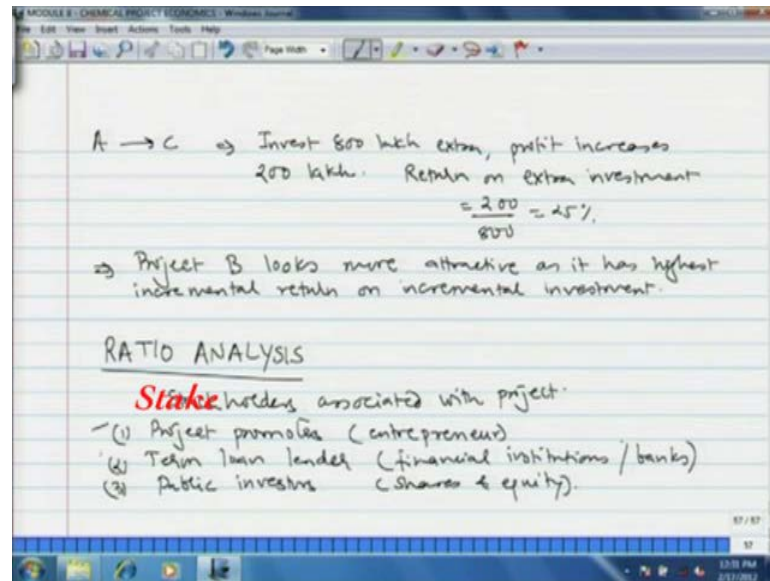 MODULE 8 - CHEMICAL PROJECT ECONOMICS - Windows Journal
File Edit View Insert Actions Tools Help
Page Width
A → C ⇒ Invest 800 lakh extra, profit increases
200 lakh. Return on extra investment
= 200/800 = 25%
⇒ Project B looks more attractive as it has highest
incremental return on incremental investment.
RATIO ANALYSIS
Stakeholders associated with project.
(1) Project promoter (entrepreneur)
(2) Term loan lender (financial institutions / banks)
(3) Public investors (shares & equity).
57 / 57
57
12:31 PM
2/13/2012